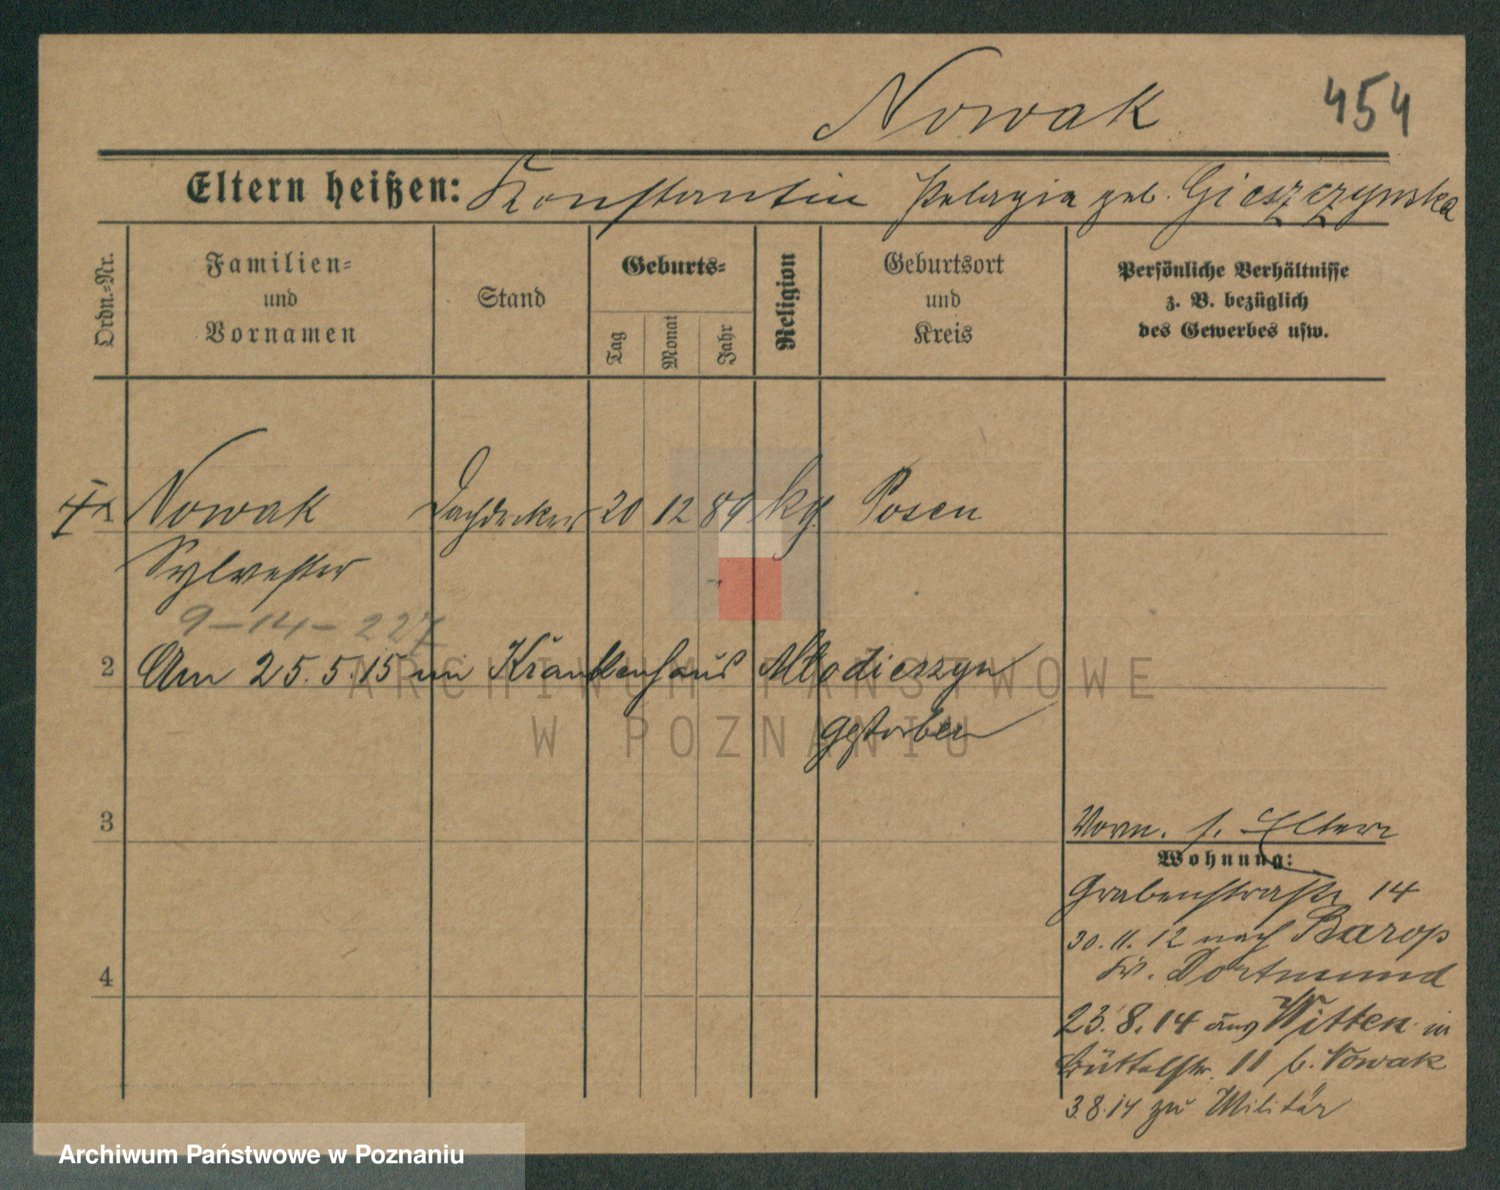 Nowak
454
Eltern heißen: Konstantin Pelagia geb. Gieszczynska
Ordn.-Nr.
Familien-
und
Vornamen
Stand
Geburts-
Tag
Monat
Jahr
Religion
Geburtsort
und
Kreis
Persönliche Verhältnisse
z. B. bezüglich
des Gewerbes usw.
1 Nowak Dachdecker 20 12 89 kg Posen
Sylvester
9-14-227
2 Am 25.5.15 im Krankenhaus Mlodieszyn
gestorben
3
4
Vorm. s. Eltern
Wohnung:
Grabenstraße 14
30.11.12 nach Barop
Kr. Dortmund
23.8.14 aus Witten in
Büttelstr. 11 b. Nowak
3.8.14 zu Militär
ARCHIWUM PAŃSTWOWE
W POZNANIU
Archiwum Państwowe w Poznaniu